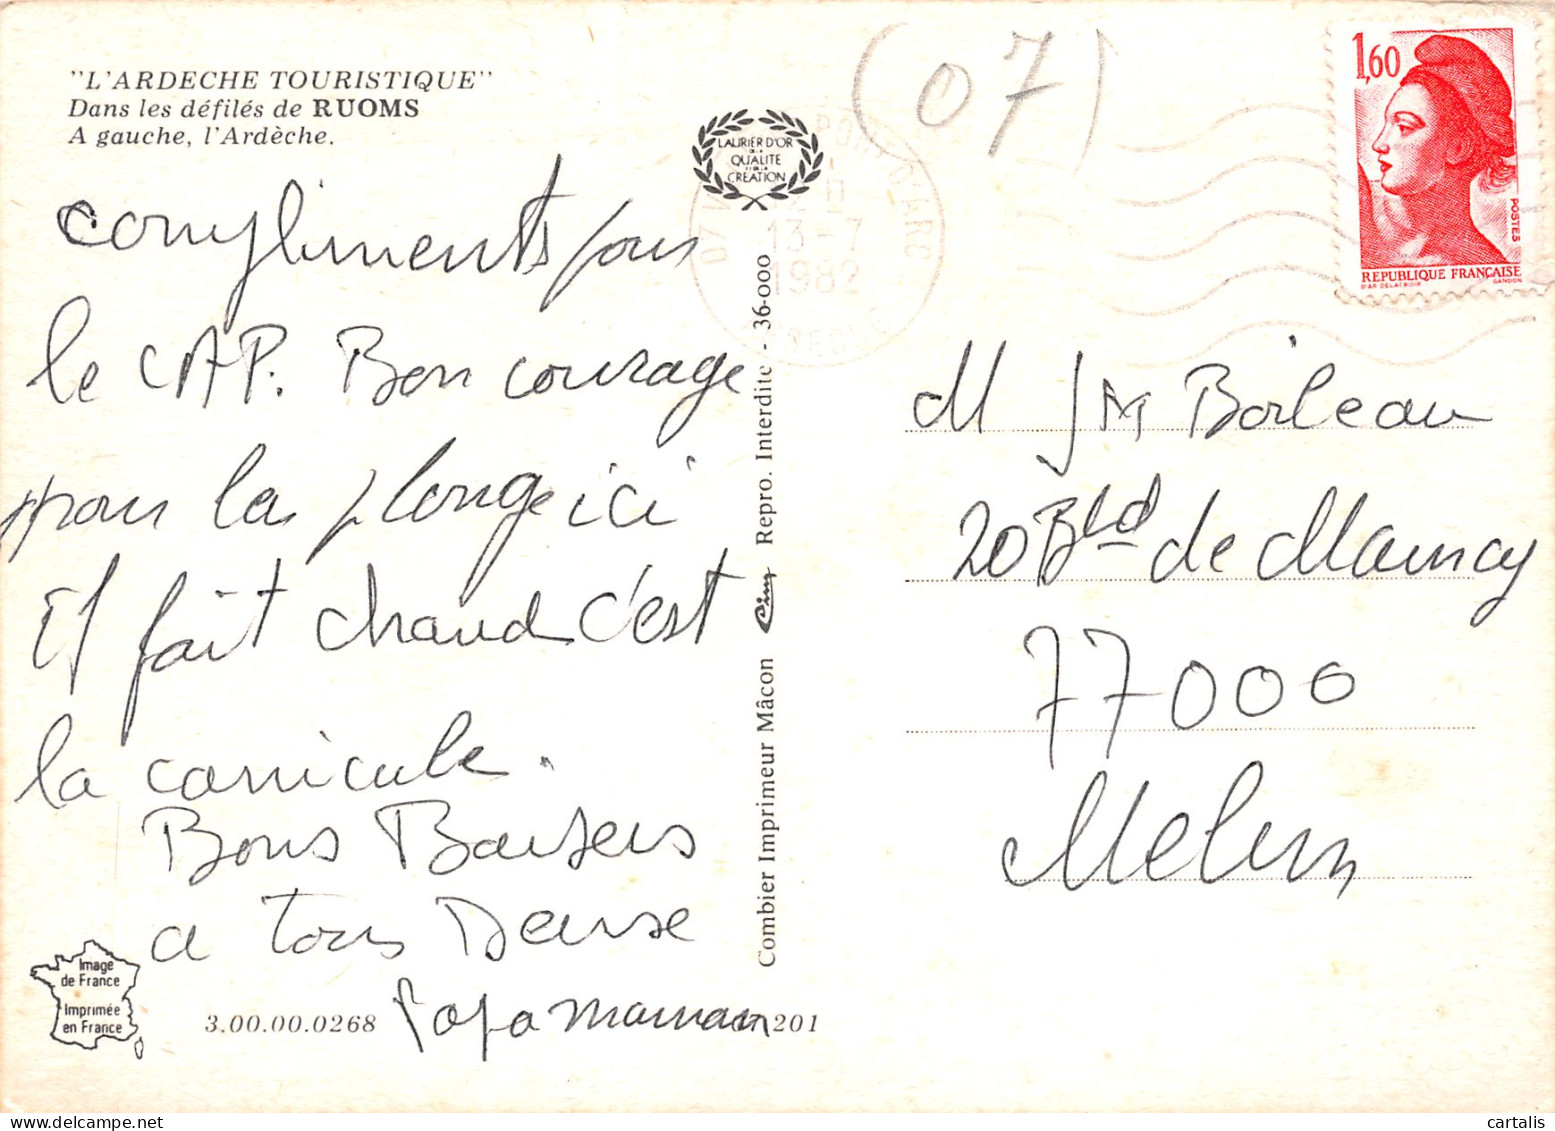 "L'ARDECHE TOURISTIQUE"
Dans les défilés de RUOMS
A gauche, l'Ardèche.
compliments pour
le CAP. Bon courage
pour la plonge ici
Il fait chaud c'est
la canicule.
Bons Baisers
a tous Denise
Papa Maman
Image
de France
Imprimée
en France
3.00.00.0268
201
LAURIER D'OR
DE LA
QUALITE
ET DE LA
CREATION
Combier Imprimeur Mâcon Cim Repro. Interdite - 36-000
(07)
07 PONT-D'ARC
13-7
1982
ARDECHE
1,60
POSTES
REPUBLIQUE FRANÇAISE
D'AP. DELACROIX GANDON
M JM Boileau
20 Bld de Maincy
77000
Melun
cartalis